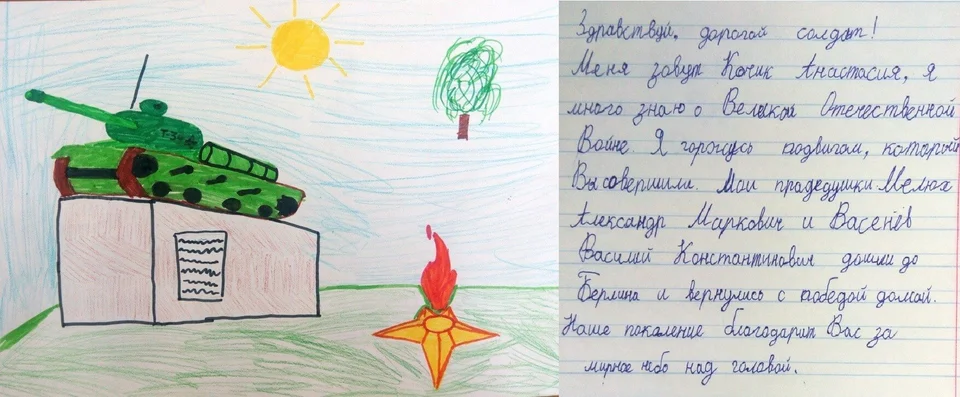 Т-34
Здравствуй, дорогой солдат!
Меня зовут Кочик Анастасия, я
много знаю о Великой Отечественной
Войне. Я горжусь подвигом, который
Вы совершили. Мои прадедушки Мелюх
Александр Маркович и Васенёв
Василий Константинович дошли до
Берлина и вернулись с победой домой.
Наше поколение благодарит Вас за
мирное небо над головой.